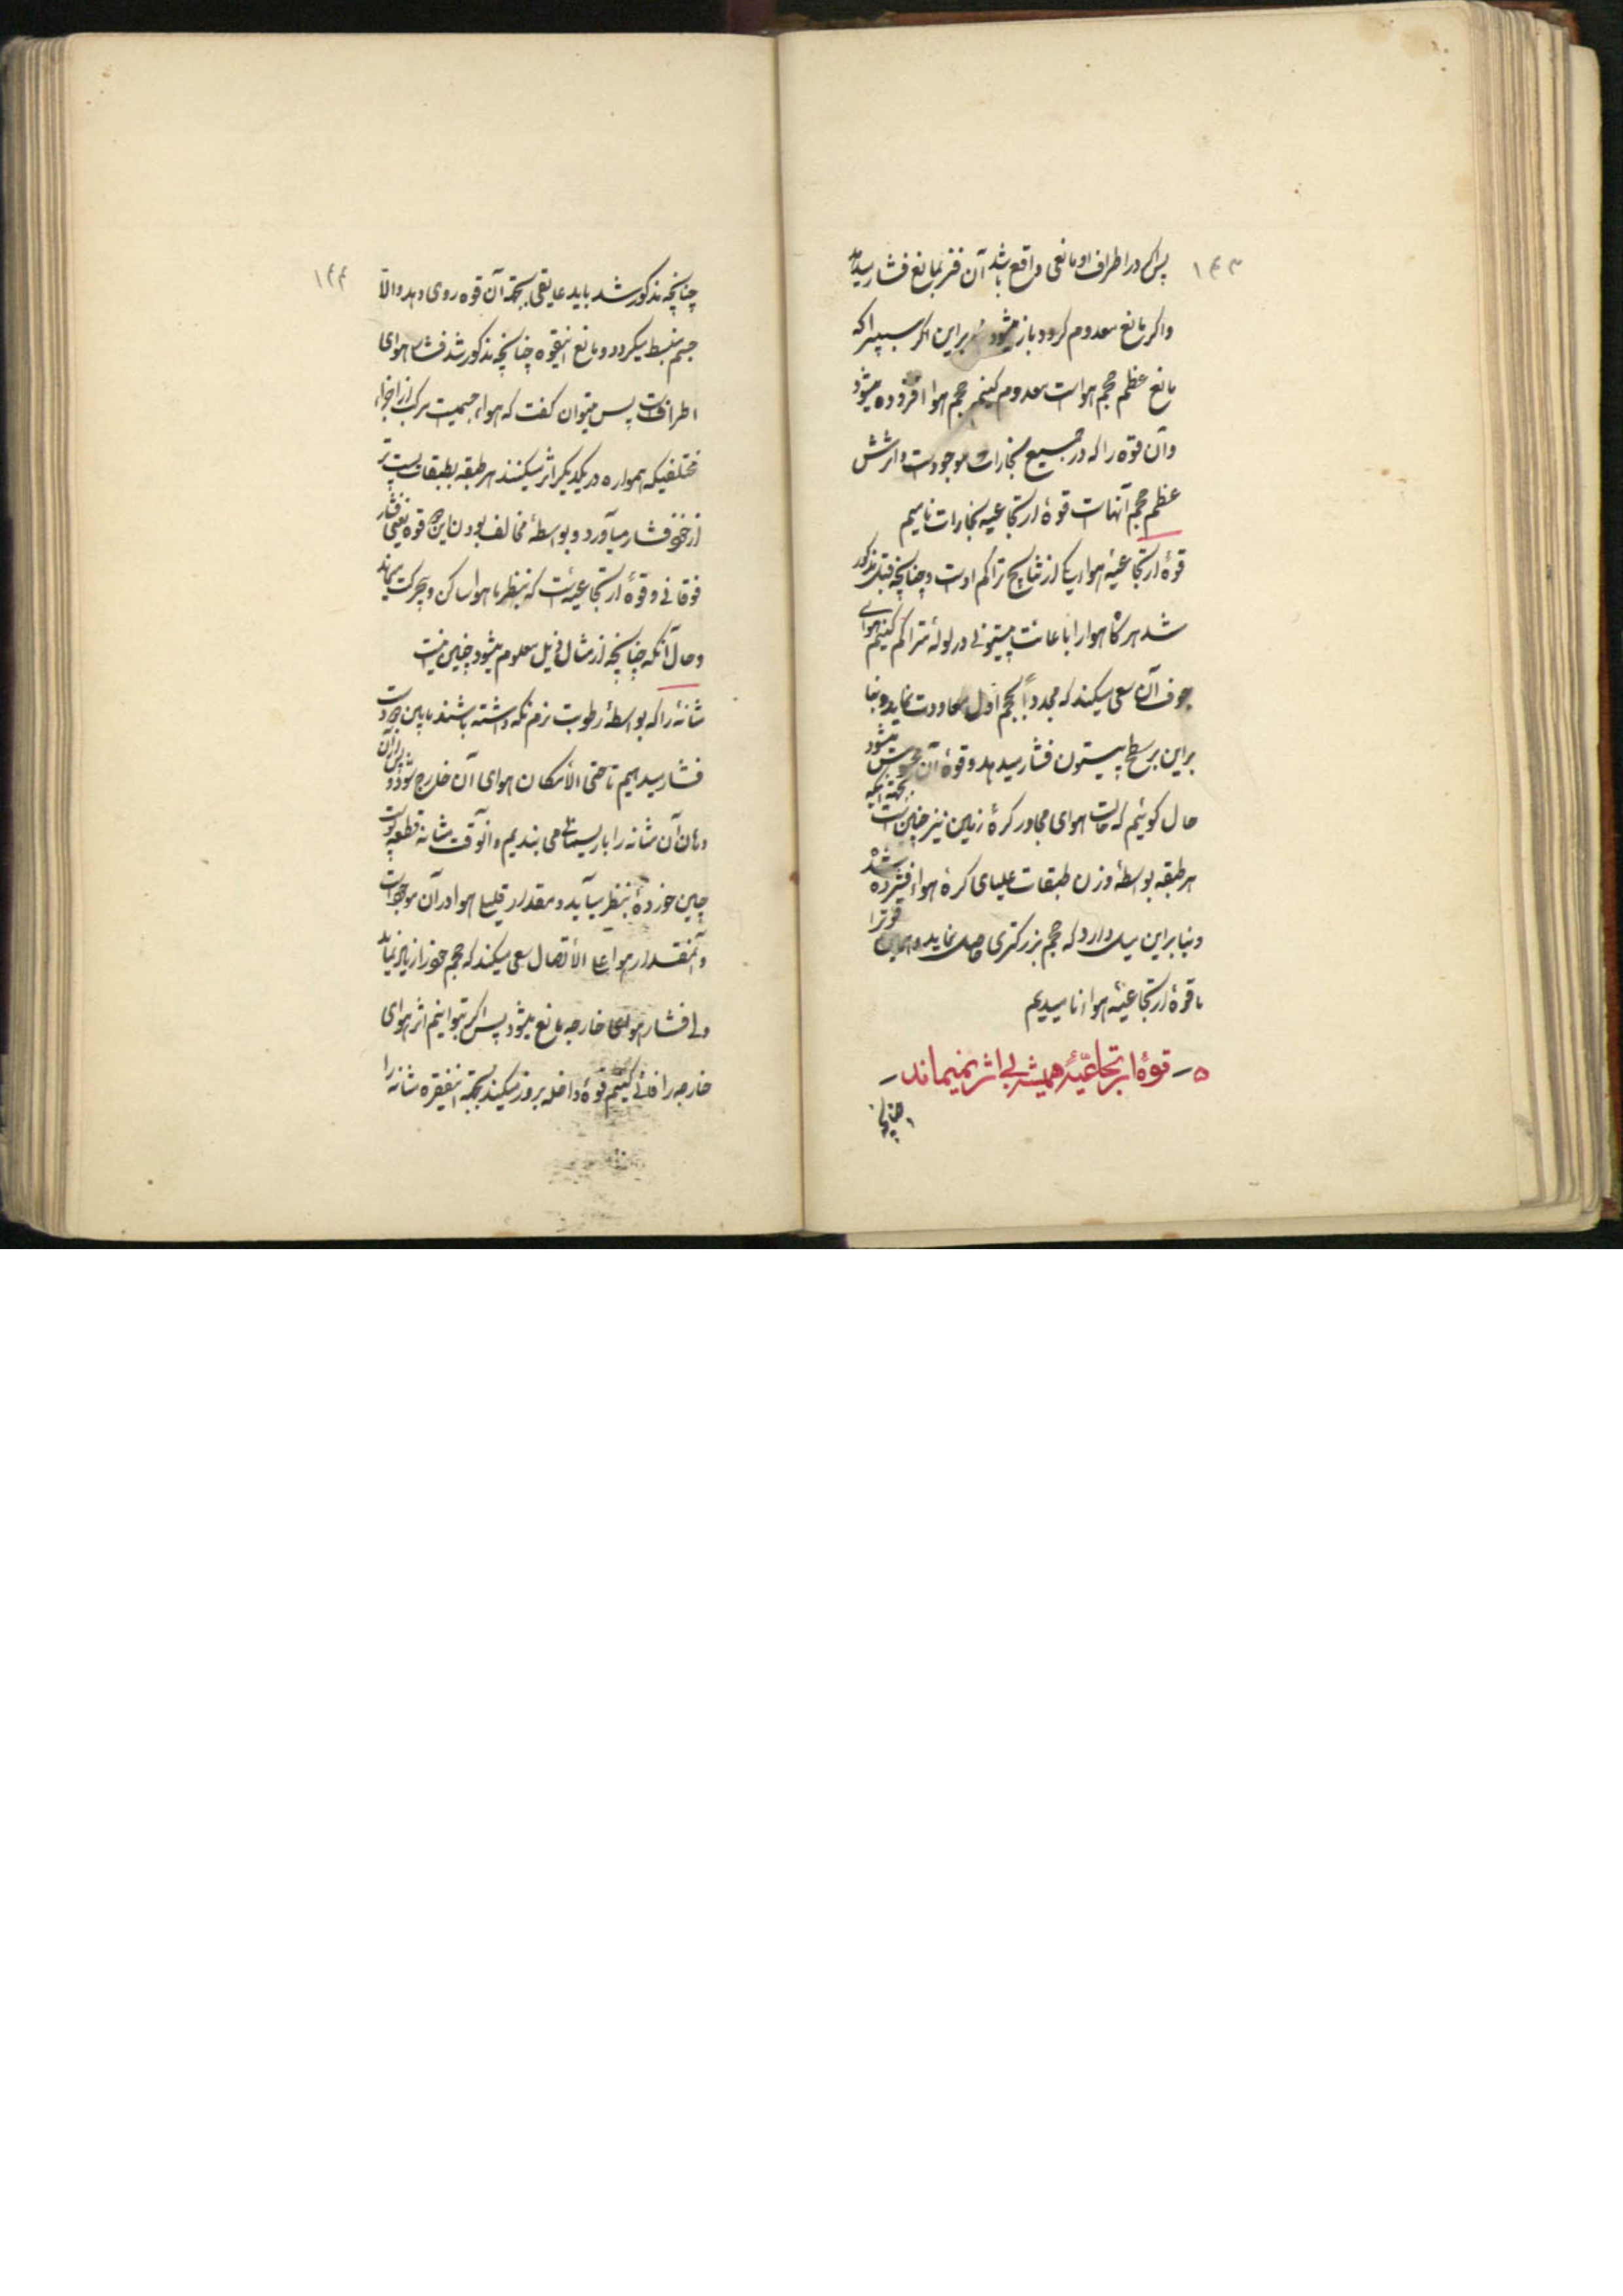 ۱۴۳
پس اگر در اطراف او مانعی واقع باشد آن فنر بمانع فشار میدهد
و اگر مانع معدوم گردد باز میشود بنابراین اگر سببی را که
مانع عظم حجم هواست معدوم کنیم حجم هوا افزوده میشود
و آن قوه را که در جمیع بخارات موجودست و اثرش
عظم حجم آنهاست قوهٔ ارتجاعیه بخارات نامیم
قوهٔ ارتجاعیهٔ هوا یکی از نتایج تراکم اوست و چنانچه قبل مذکور
شد هرگاه هوا را باعانت پیستونی در لولهٔ متراکم کنیم هوای
جوف آن سعی میکند که مجدداً بحجم اول معاودت نماید و بنا
براین بر سطح پیستون فشار میدهد و قوهٔ آن محسوس میشود
حال گوئیم که حالت هوای مجاور کرهٔ زمین نیز چنین است بجهة اینکه
هر طبقه بواسطهٔ وزن طبقات علیای کرهٔ هوا فشرده شده
و بنابراین میل دارد که حجم بزرگتری حاصل نماید و همین قوه را
ما قوهٔ ارتجاعیهٔ هوا نامیدیم
۵ – قوهٔ ارتجاعیّهٔ همیشه بی اثر نمیماند –
چنانچه
۱۴۴
چنانچه مذکور شد باید عایقی بجهة آن قوه روی دهد و الّا
جسم منبسط میگردد و مانع اینقوه چنانچه مذکور شد فشار هوای
اطرافست پس میتوان گفت که هوا جسمیست مرکب از اجزاء
مختلفه که همواره در یکدیگر اثر میکنند هر طبقه بطبقات پست تر
از خود فشار میآورد و بواسطهٔ مخالف بودن این دو قوه یعنی فشار
فوقانی و قوهٔ ارتجاعیه ئست که بنظر ما هوا ساکن و بیحرکت میماند
و حال آنکه چنانچه از مثال ذیل معلوم میشود چنین نیست
شانهٔ را که بواسطهٔ رطوبت نرم نگه داشته باشند مابین دو دست
فشار میدهیم تا حتی الأمکان هوای آن خارج شود و پس از آن
دهان آن مثانه را با ریسمانی می بندیم و آنوقت مثانه قطعه پوست
چین خوردهٔ بنظر میآید و مقدار قلیلی هوا در آن موجود است
و آنمقدار هوا علی الأتصال سعی میکند که حجم خود را زیاد نماید
ولی فشار هوای خارجه مانع میشود پس اگر بتوانیم اثر هوای
خارجه را فانی کنیم قوهٔ داخله بروز میکند بجهة اینفقره مثانه را